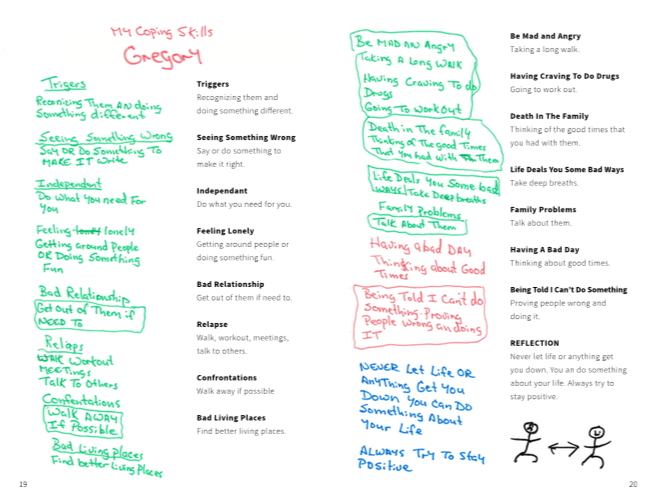 My Coping Skills
Gregory
Trigers
Recognizing Them AN doing
Something different
Seeing Something Wrong
Say OR Do Something To
MAKE IT Write
Independant
Do What You need For
You
Feeling lonly lonely
Getting around People
OR Doing Something
Fun
Bad Relationship
Get out of Them if
NEED TO
Relaps
WALK Workout
MEETINGS
Talk To Others
Confentations
WALK AWAY
If Possible
Bad Living places
Find better Living Places
Triggers
Recognizing them and
doing something different.
Seeing Something Wrong
Say or do something to
make it right.
Independant
Do what you need for you.
Feeling Lonely
Getting around people or
doing something fun.
Bad Relationship
Get out of them if need to.
Relapse
Walk, workout, meetings,
talk to others.
Confrontations
Walk away if possible
Bad Living Places
Find better living places.
19
Be MAD AN Angry
Taking A Long WALK
Having Craving To do
Drugs
Going To Workout
Death in The family
Thinking of The Good Times
That You had With Them
Life Deals You Some bad
WAYS Take Deep breaths
Family Problems
Talk About Them
Having A bad DAY
Thinking about Good
Times
Being Told I Can't do
Something. Proving
People Wrong an doing
IT
NEVER Let Life OR
AnyThing Get You
Down You Can DO
Something About
Your Life
ALWAYS Try To Stay
Positive
Be Mad and Angry
Taking a long walk.
Having Craving To Do Drugs
Going to work out.
Death In The Family
Thinking of the good times that
you had with them.
Life Deals You Some Bad Ways
Take deep breaths.
Family Problems
Talk about them.
Having A Bad Day
Thinking about good times.
Being Told I Can't Do Something
Proving people wrong and
doing it.
REFLECTION
Never let life or anything get
you down. You an do something
about your life. Always try to
stay positive.
20